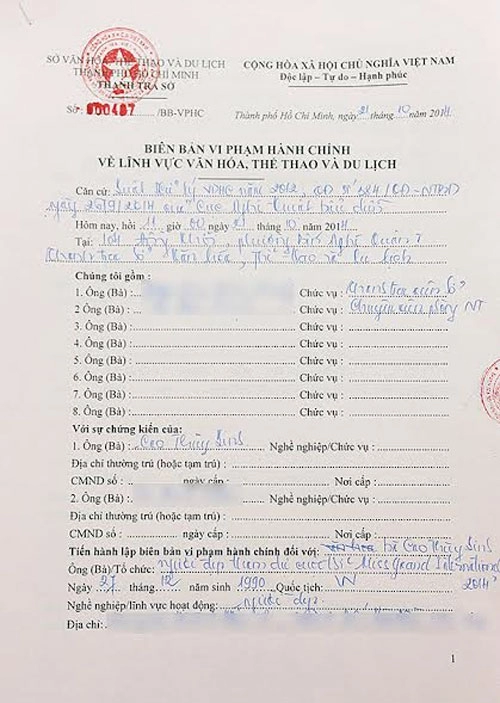 SỞ VĂN HÓA, THỂ THAO VÀ DU LỊCH
THÀNH PHỐ HỒ CHÍ MINH
THANH TRA SỞ
CỘNG HÒA XÃ HỘI CHỦ NGHĨA VIỆT NAM
Độc lập – Tự do – Hạnh phúc
Số: 000487 /BB-VPHC
Thành phố Hồ Chí Minh, ngày 21 tháng 10 năm 2014
BIÊN BẢN VI PHẠM HÀNH CHÍNH
VỀ LĨNH VỰC VĂN HÓA, THỂ THAO VÀ DU LỊCH
Căn cứ: Luật xử lý VPHC năm 2012,
ngày 26/9/2014 của Cục Nghệ thuật biểu diễn
Hôm nay, hồi 11 giờ 00 ngày 21 tháng 10 năm 2014
Tại: 104 Đồng Khởi, phường Bến Nghé Quận 1
Thanh tra Sở Văn hóa, Thể thao và Du lịch
Chúng tôi gồm :
1. Ông (Bà) : Chức vụ : Thanh tra viên Sở
2 Ông (Bà) : Chức vụ : Chuyên viên phòng NT
3. Ông (Bà) : Chức vụ :
4. Ông (Bà) : Chức vụ :
5. Ông (Bà) : Chức vụ :
6. Ông (Bà) : Chức vụ :
7. Ông (Bà) : Chức vụ :
8. Ông (Bà) : Chức vụ :
Với sự chứng kiến của:
1. Ông (Bà) : Cao Thùy Linh Nghề nghiệp/Chức vụ :
Địa chỉ thường trú (hoặc tạm trú) :
CMND số : ngày cấp : Nơi cấp :
2. Ông (Bà) : Nghề nghiệp/Chức vụ :
Địa chỉ thường trú (hoặc tạm trú) :
CMND số : ngày cấp : Nơi cấp :
Tiến hành lập biên bản vi phạm hành chính đối với: bà Cao Thùy Linh
Ông (Bà)/Tổ chức: người đẹp tham dự cuộc thi Miss Grand International
2014
Ngày 27 tháng 12 năm sinh 1990 Quốc tịch: VN
Nghề nghiệp/lĩnh vực hoạt động: người đẹp
Địa chỉ:
1